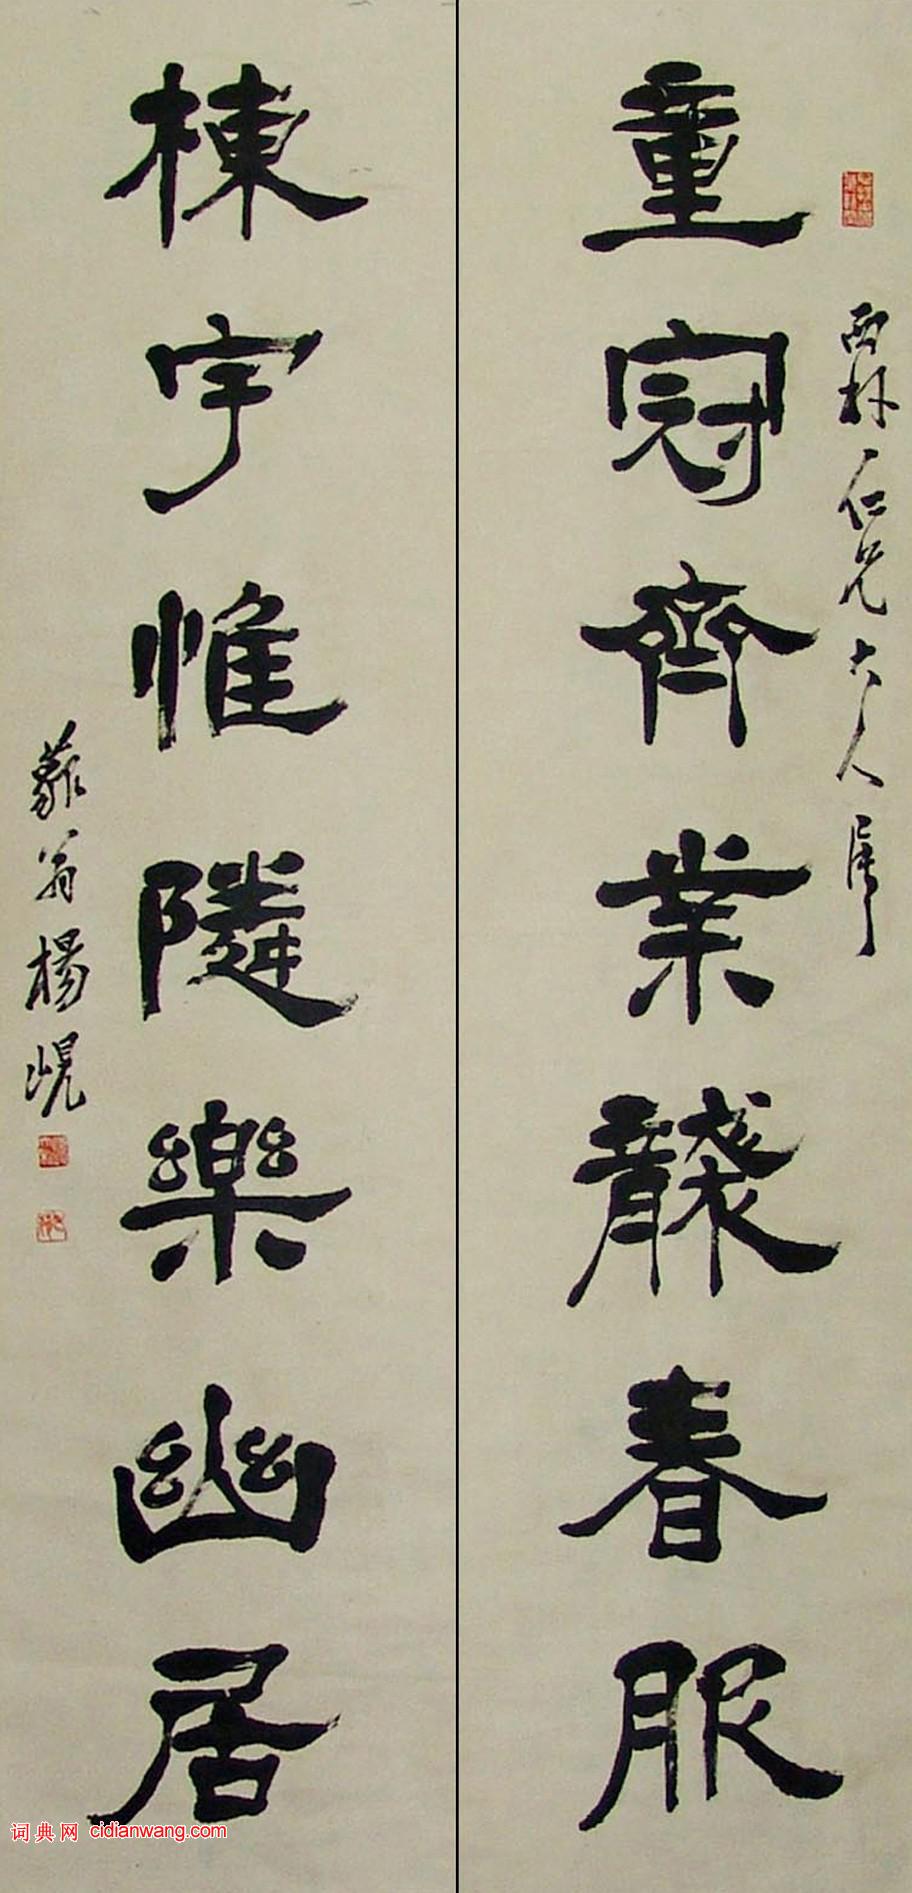 西林仁兄大人属
童冠齊業襲春服
棟宇惟隣樂幽居
藐翁楊峴
词典网 cidianwang.com